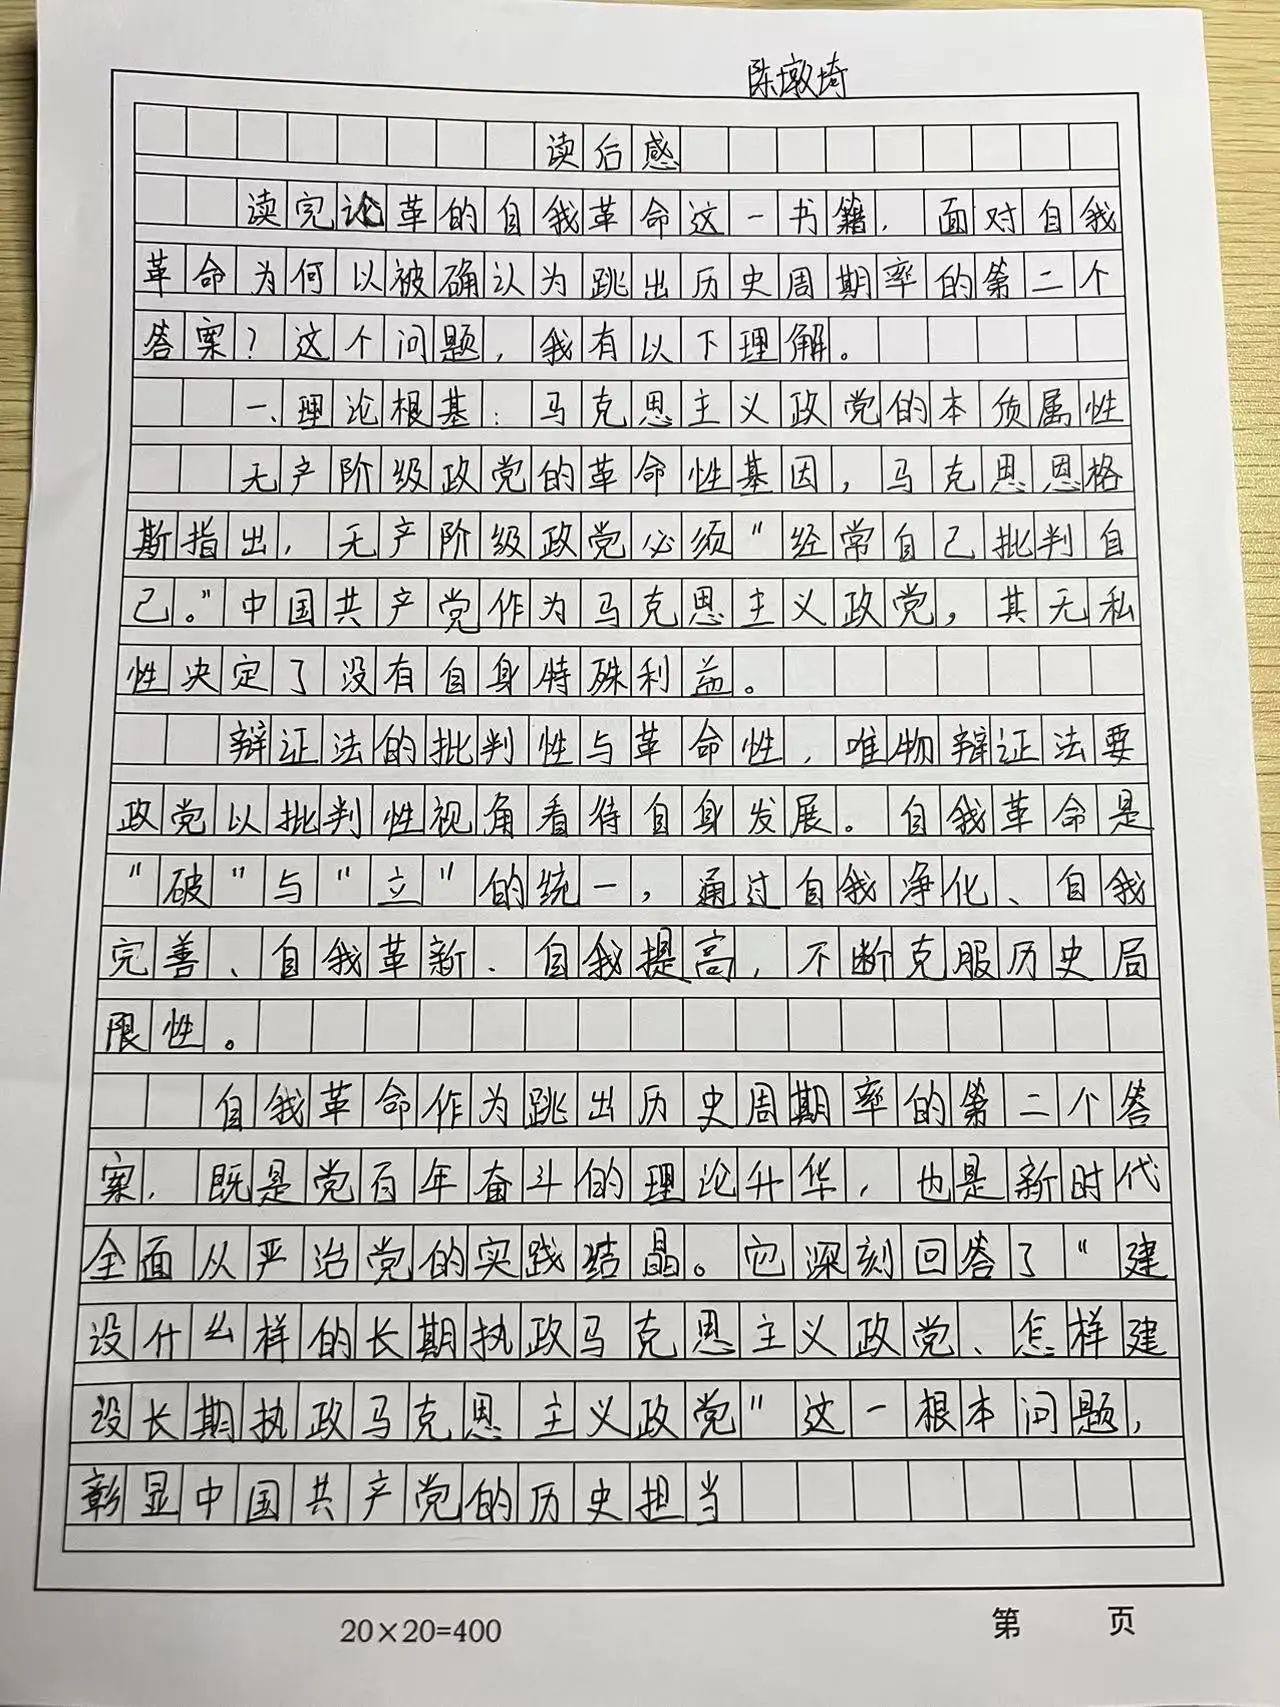 陈墩埼
读后感
读完论革的自我革命这一书籍，面对自我
革命为何以被确认为跳出历史周期率的第二个
答案？这个问题，我有以下理解。
一、理论根基：马克思主义政党的本质属性
无产阶级政党的革命性基因，马克思恩格
斯指出，无产阶级政党必须"经常自己批判自
己。"中国共产党作为马克思主义政党，其无私
性决定了没有自身特殊利益。
辩证法的批判性与革命性，唯物辩证法要
政党以批判性视角看待自身发展。自我革命是
"破"与"立"的统一，通过自我净化、自我
完善、自我革新、自我提高，不断克服历史局
限性。
自我革命作为跳出历史周期率的第二个答
案，既是党百年奋斗的理论升华，也是新时代
全面从严治党的实践结晶。它深刻回答了"建
设什么样的长期执政马克思主义政党、怎样建
设长期执政马克思主义政党"这一根本问题，
彰显中国共产党的历史担当
20×20=400
第 页